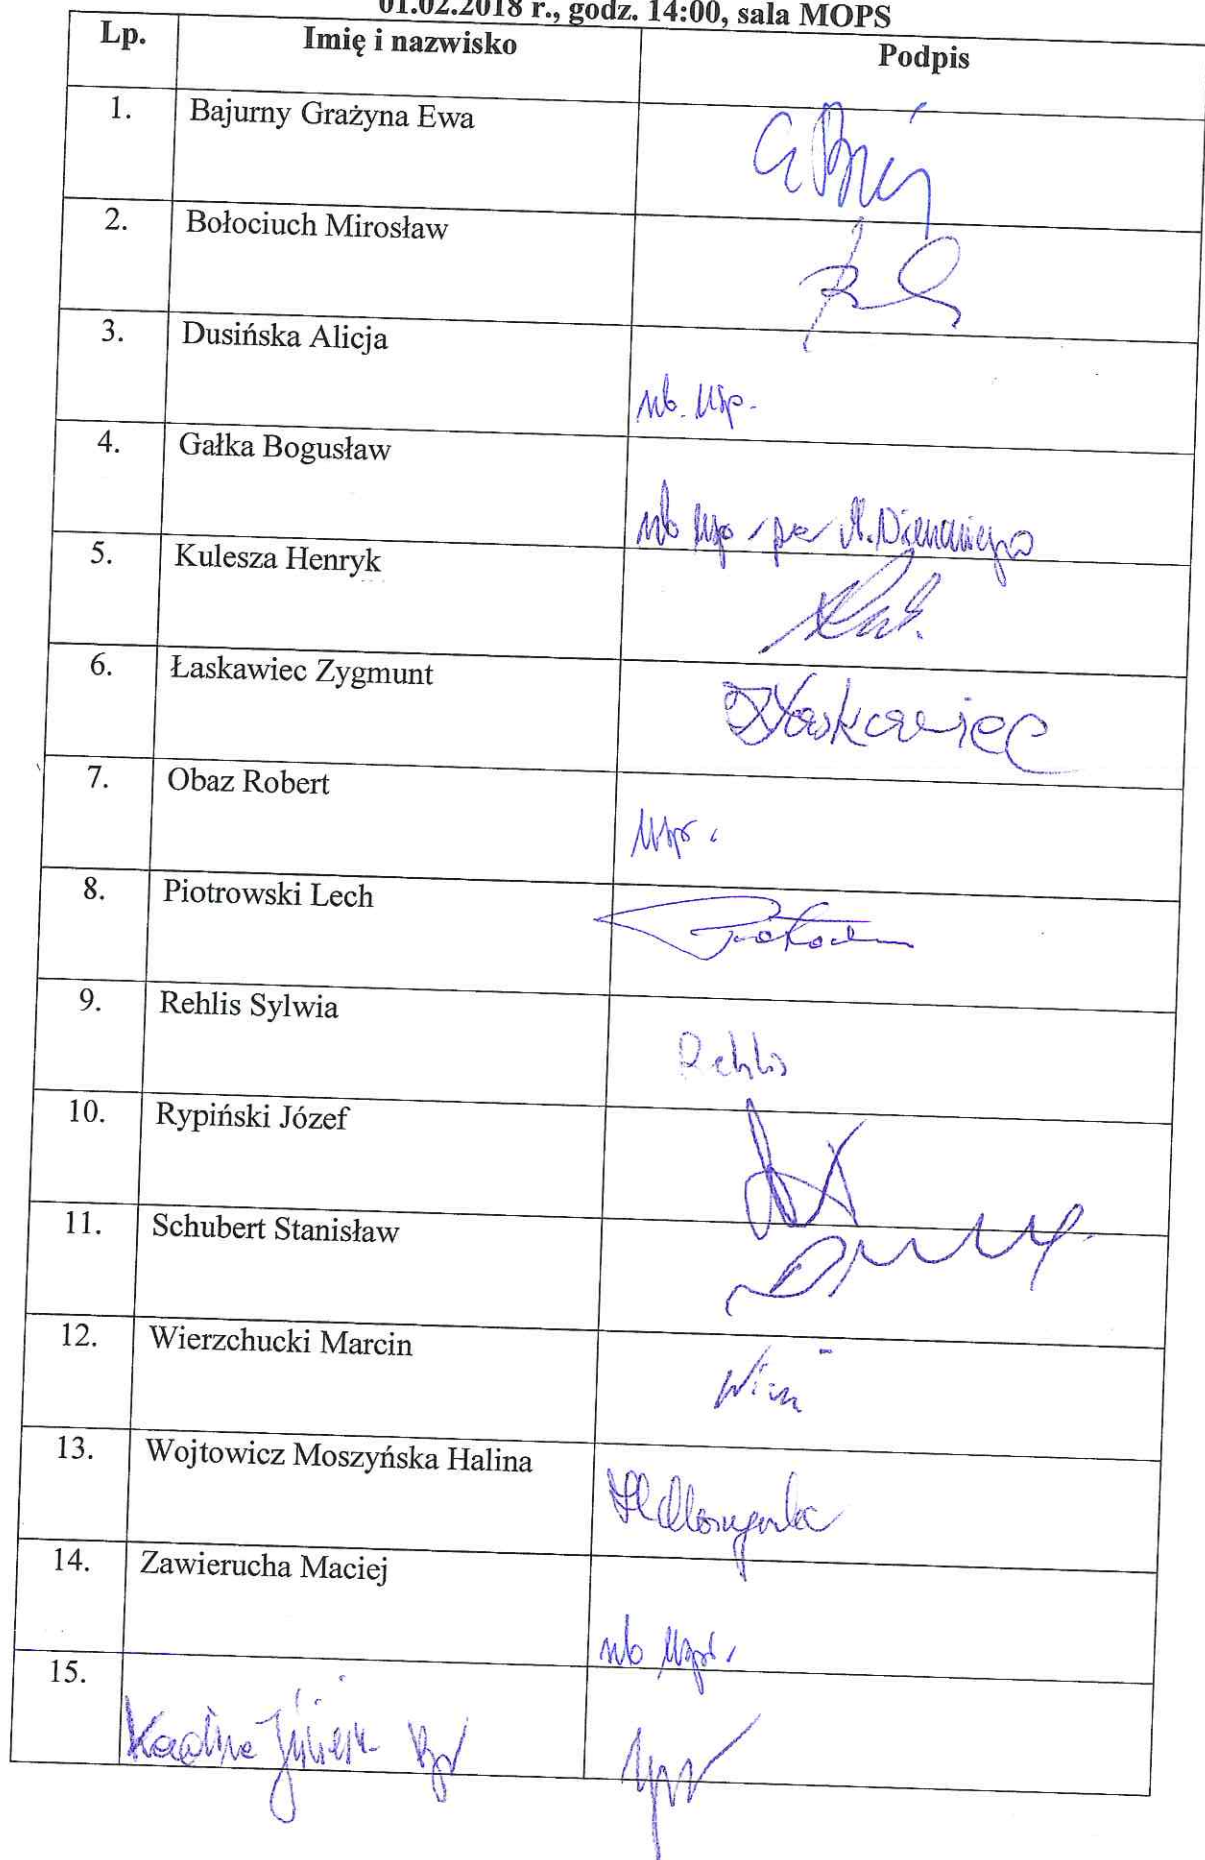 01.02.2018 r., godz. 14:00, sala MOPS
Lp. Imię i nazwisko Podpis
1. Bajurny Grażyna Ewa
2. Bołociuch Mirosław
3. Dusińska Alicja nb. usp.
4. Gałka Bogusław nb usp
5. Kulesza Henryk
6. Łaskawiec Zygmunt ZŁaskawiec
7. Obaz Robert usp.
8. Piotrowski Lech
9. Rehlis Sylwia Rehlis
10. Rypiński Józef
11. Schubert Stanisław
12. Wierzchucki Marcin
13. Wojtowicz Moszyńska Halina
14. Zawierucha Maciej nb usp.
15.